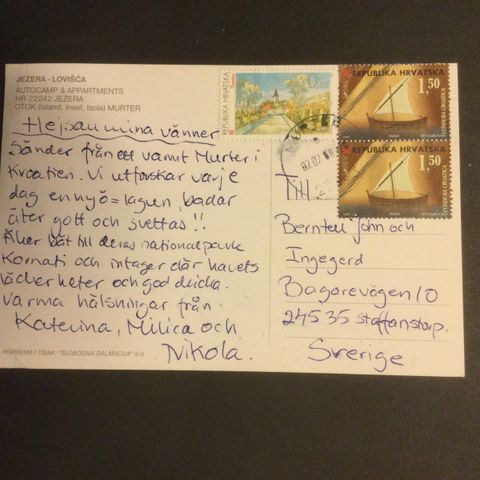 JEZERA - LOVIŠĆA
AUTOCAMP & APPARTMENTS
HR 22242 JEZERA
OTOK (Island, Insel, Isola) MURTER
Hejsan mina vänner
Sänder från ett varmt Murter i
Kroatien. Vi utforskar varje
dag en ny ö = lagun, badar
äter gott och svettas !!
Åker båt till deras nationalpark
Kornati och intager där havets
läckerheter och god dricka.
Varma hälsningar från
Katerina, Milica och
Nikola.
PRIPREMA I TISAK: "SLOBODNA DALMACIJA" d.d.
REPUBLIKA HRVATSKA
REPUBLIKA HRVATSKA
1,50
CONDURA CROATICA
REPUBLIKA HRVATSKA
1,50
CONDURA CROATICA
MURTER
Till
Berntell John och
Ingegerd
Bagarevägen 10
24535 Staffanstorp.
Sverige